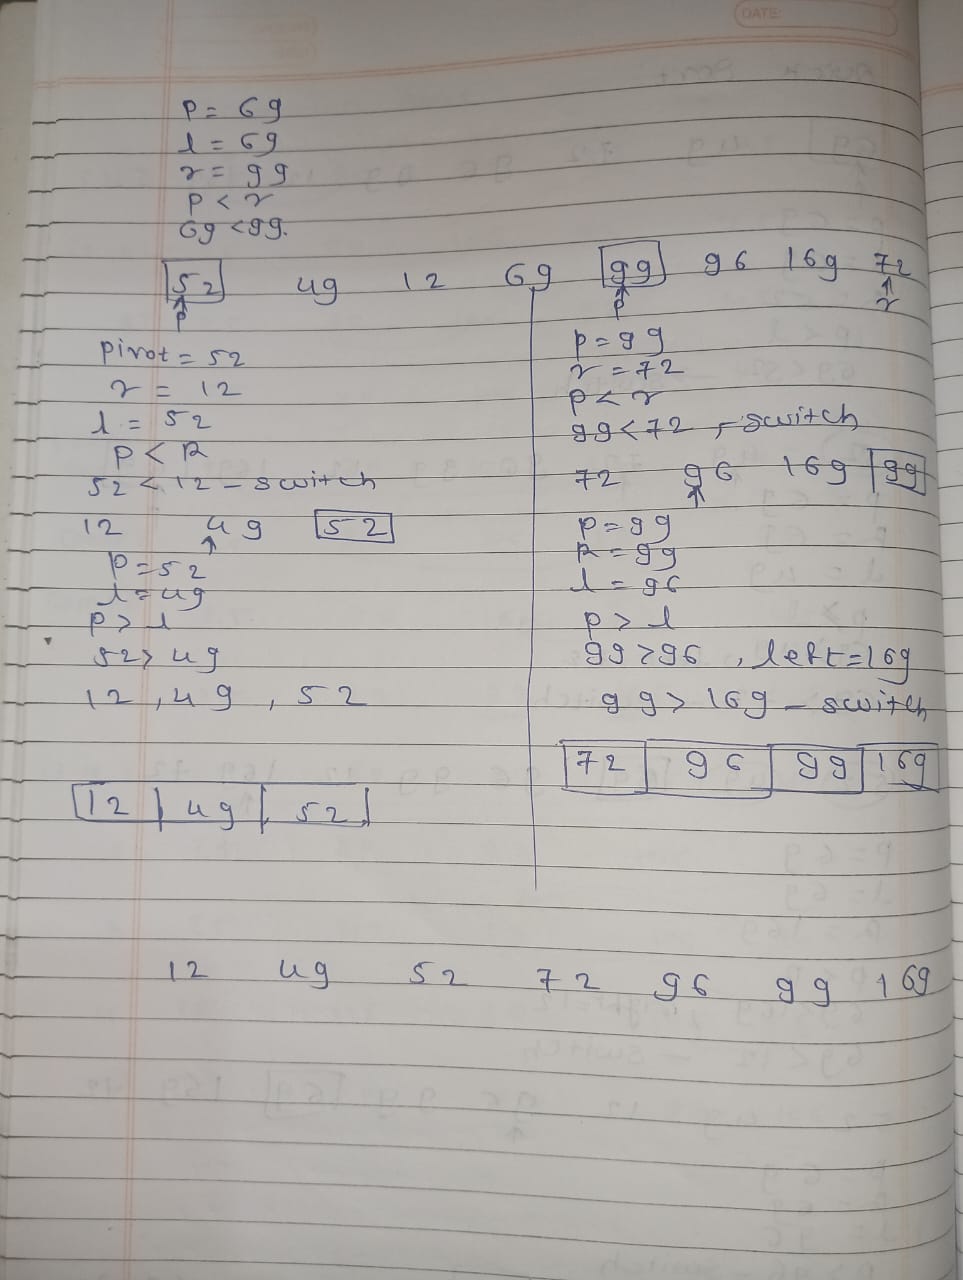 DATE:
P = 69
l = 69
r = 99
P < r
69 < 99.
52 49 12 69 99 96 169 72
P
P
r
pivot = 52
r = 12
l = 52
P < R
52 < 12 - switch
12 49 52
P = 52
l = 49
P > l
52 > 49
12, 49, 52
12 49 52
P = 99
r = 72
P < r
99 < 72, switch
72 96 169 99
P = 99
R = 99
l = 96
P > l
99 > 96, left = 169
99 > 169 - switch
72 96 99 169
12 49 52 72 96 99 169